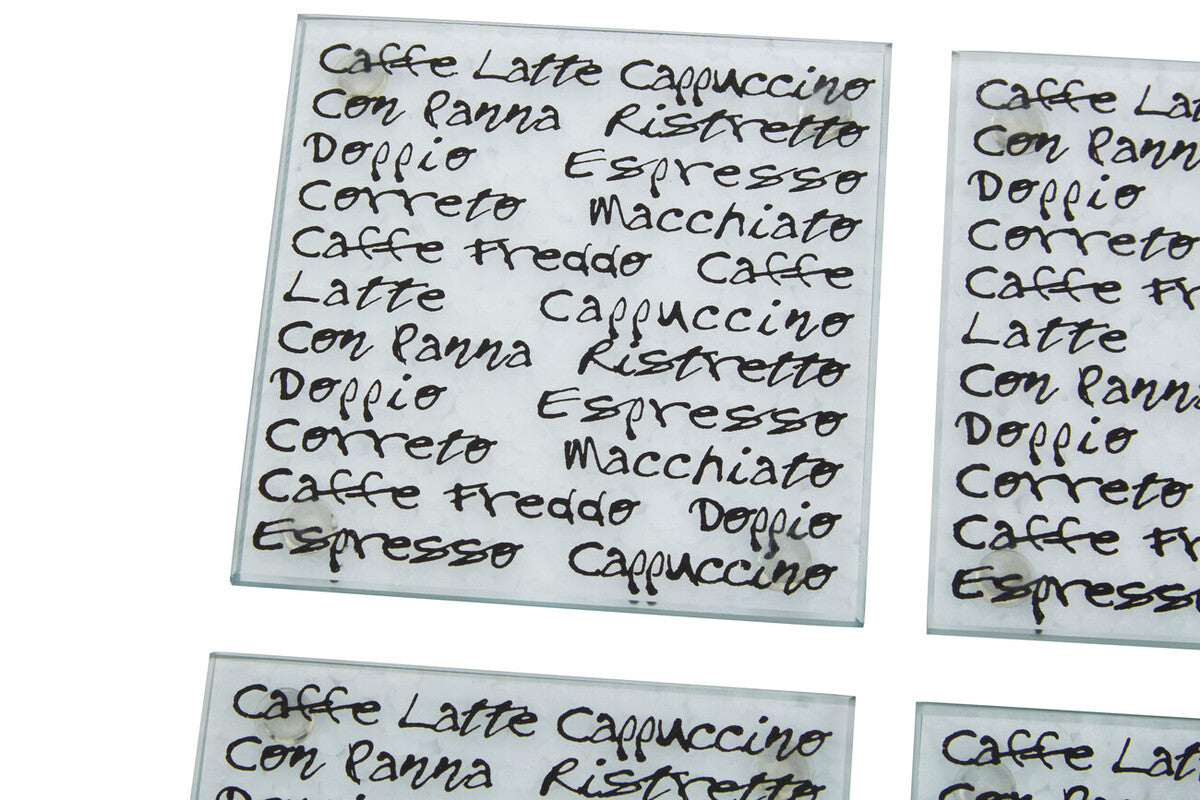 Caffe Latte Cappuccino
Con Panna Ristretto
Doppio Espresso
Correto Macchiato
Caffe Freddo Caffe
Latte Cappuccino
Con Panna Ristretto
Doppio Espresso
Correto Macchiato
Caffe Freddo Doppio
Espresso Cappuccino
Caffe
Con
Doppio
Correto
Caffe
Latte
Con Panna
Doppio
Correto
Caffe
Espresso
Caffe Latte Cappuccino
Con Panna Ristretto
Caffe
Con